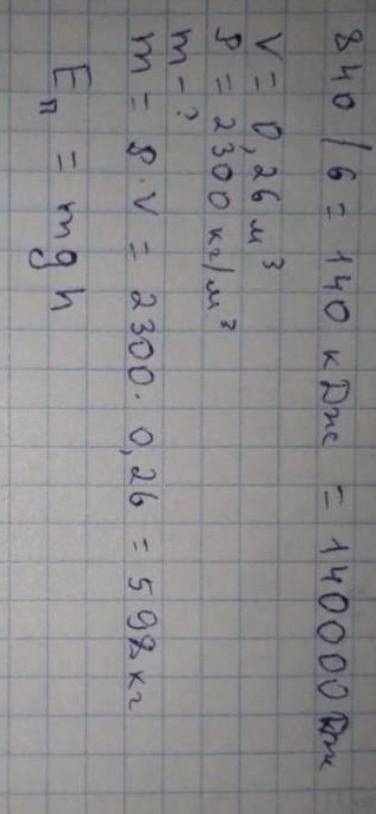 840 / 6 = 140 кДж = 140000 Дж
V = 0,26 м³
ρ = 2300 кг/м³
m - ?
m = ρ · V = 2300 · 0,26 = 598 кг
Eп = mgh